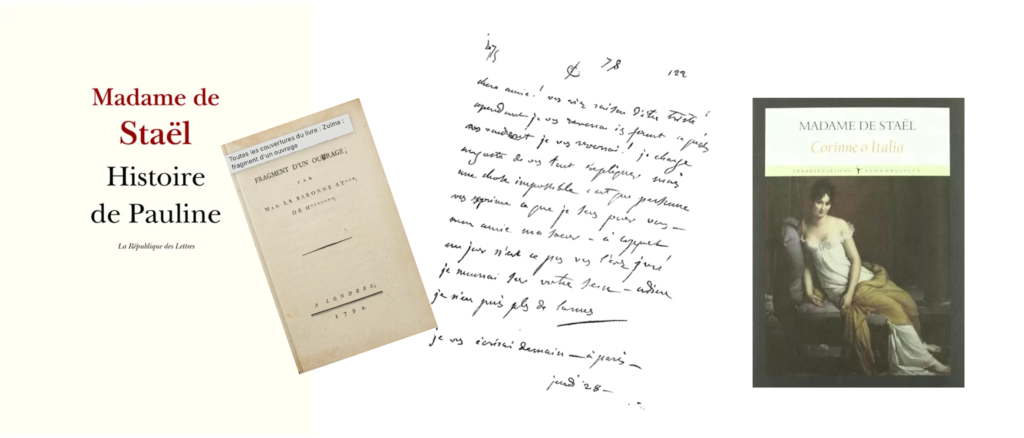 Madame de
Staël
Histoire
de Pauline
La République des Lettres
Toutes les couvertures du livre : Zulma :
fragment d'un ouvrage
FRAGMENT D'UN OUVRAGE,
PAR
MAD. LA BARONNE ST
DE H
A LONDRES,
78
122
chere amie !
cependant je vous
je vous reverrai ! je change
de vous tout expliquer mais
une chose impossible c'est que personne
vous exprime ce que je sens pour vous —
mon amie ma soeur — à
un jour n'est ce pas vous l'avez juré
je sur votre sein — adieu
je n'en puis plus de larmes
je vous écrirai demain — à paris —
jeudi 28 —
MADAME DE STAËL
Corinne o Italia